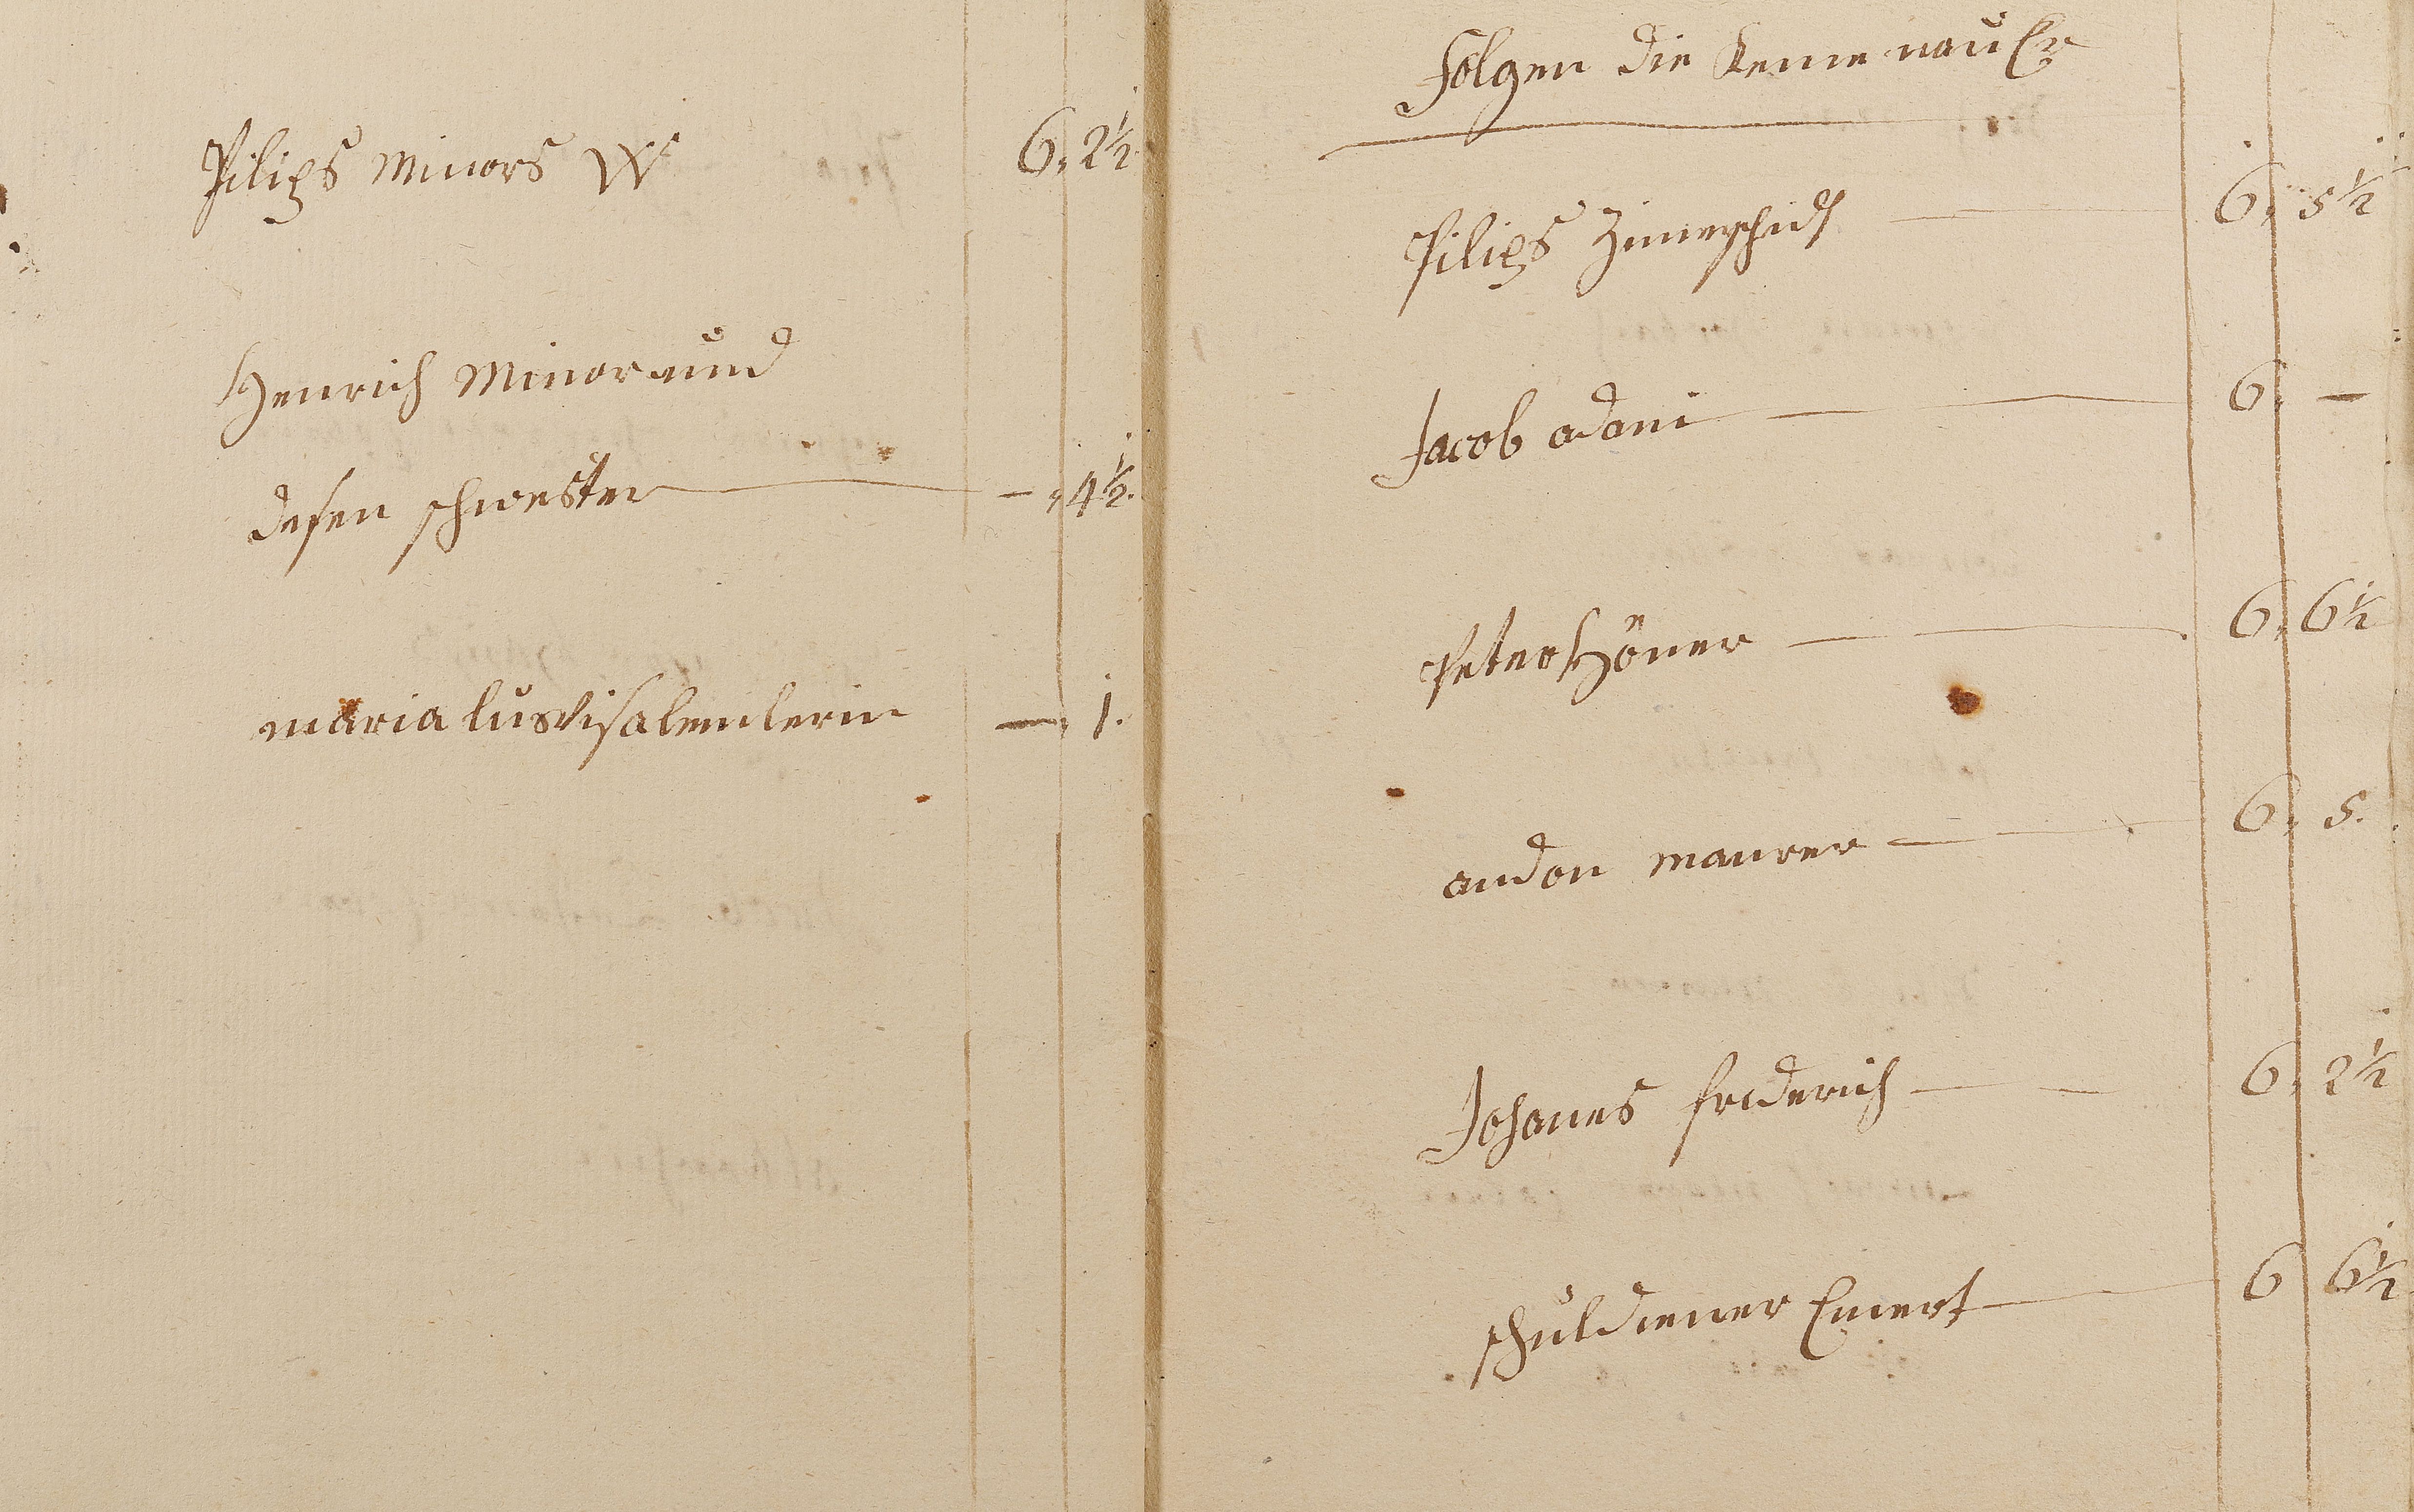 Pilips Minors W 6, 2 1/2
Henrich Minor und
desen schwester — , 4 1/2.
maria lusvisalemlerin — , 1.
Folgen die Kemenauer
Pilips Zimerschidt — 6, 5 1/2
Jacob adam — 6, —
Peter Höner — 6, 6 1/2
andon maurer — 6, 5.
Johanes friderich — 6, 2 1/2
schuldiener Emert — 6 6 1/2